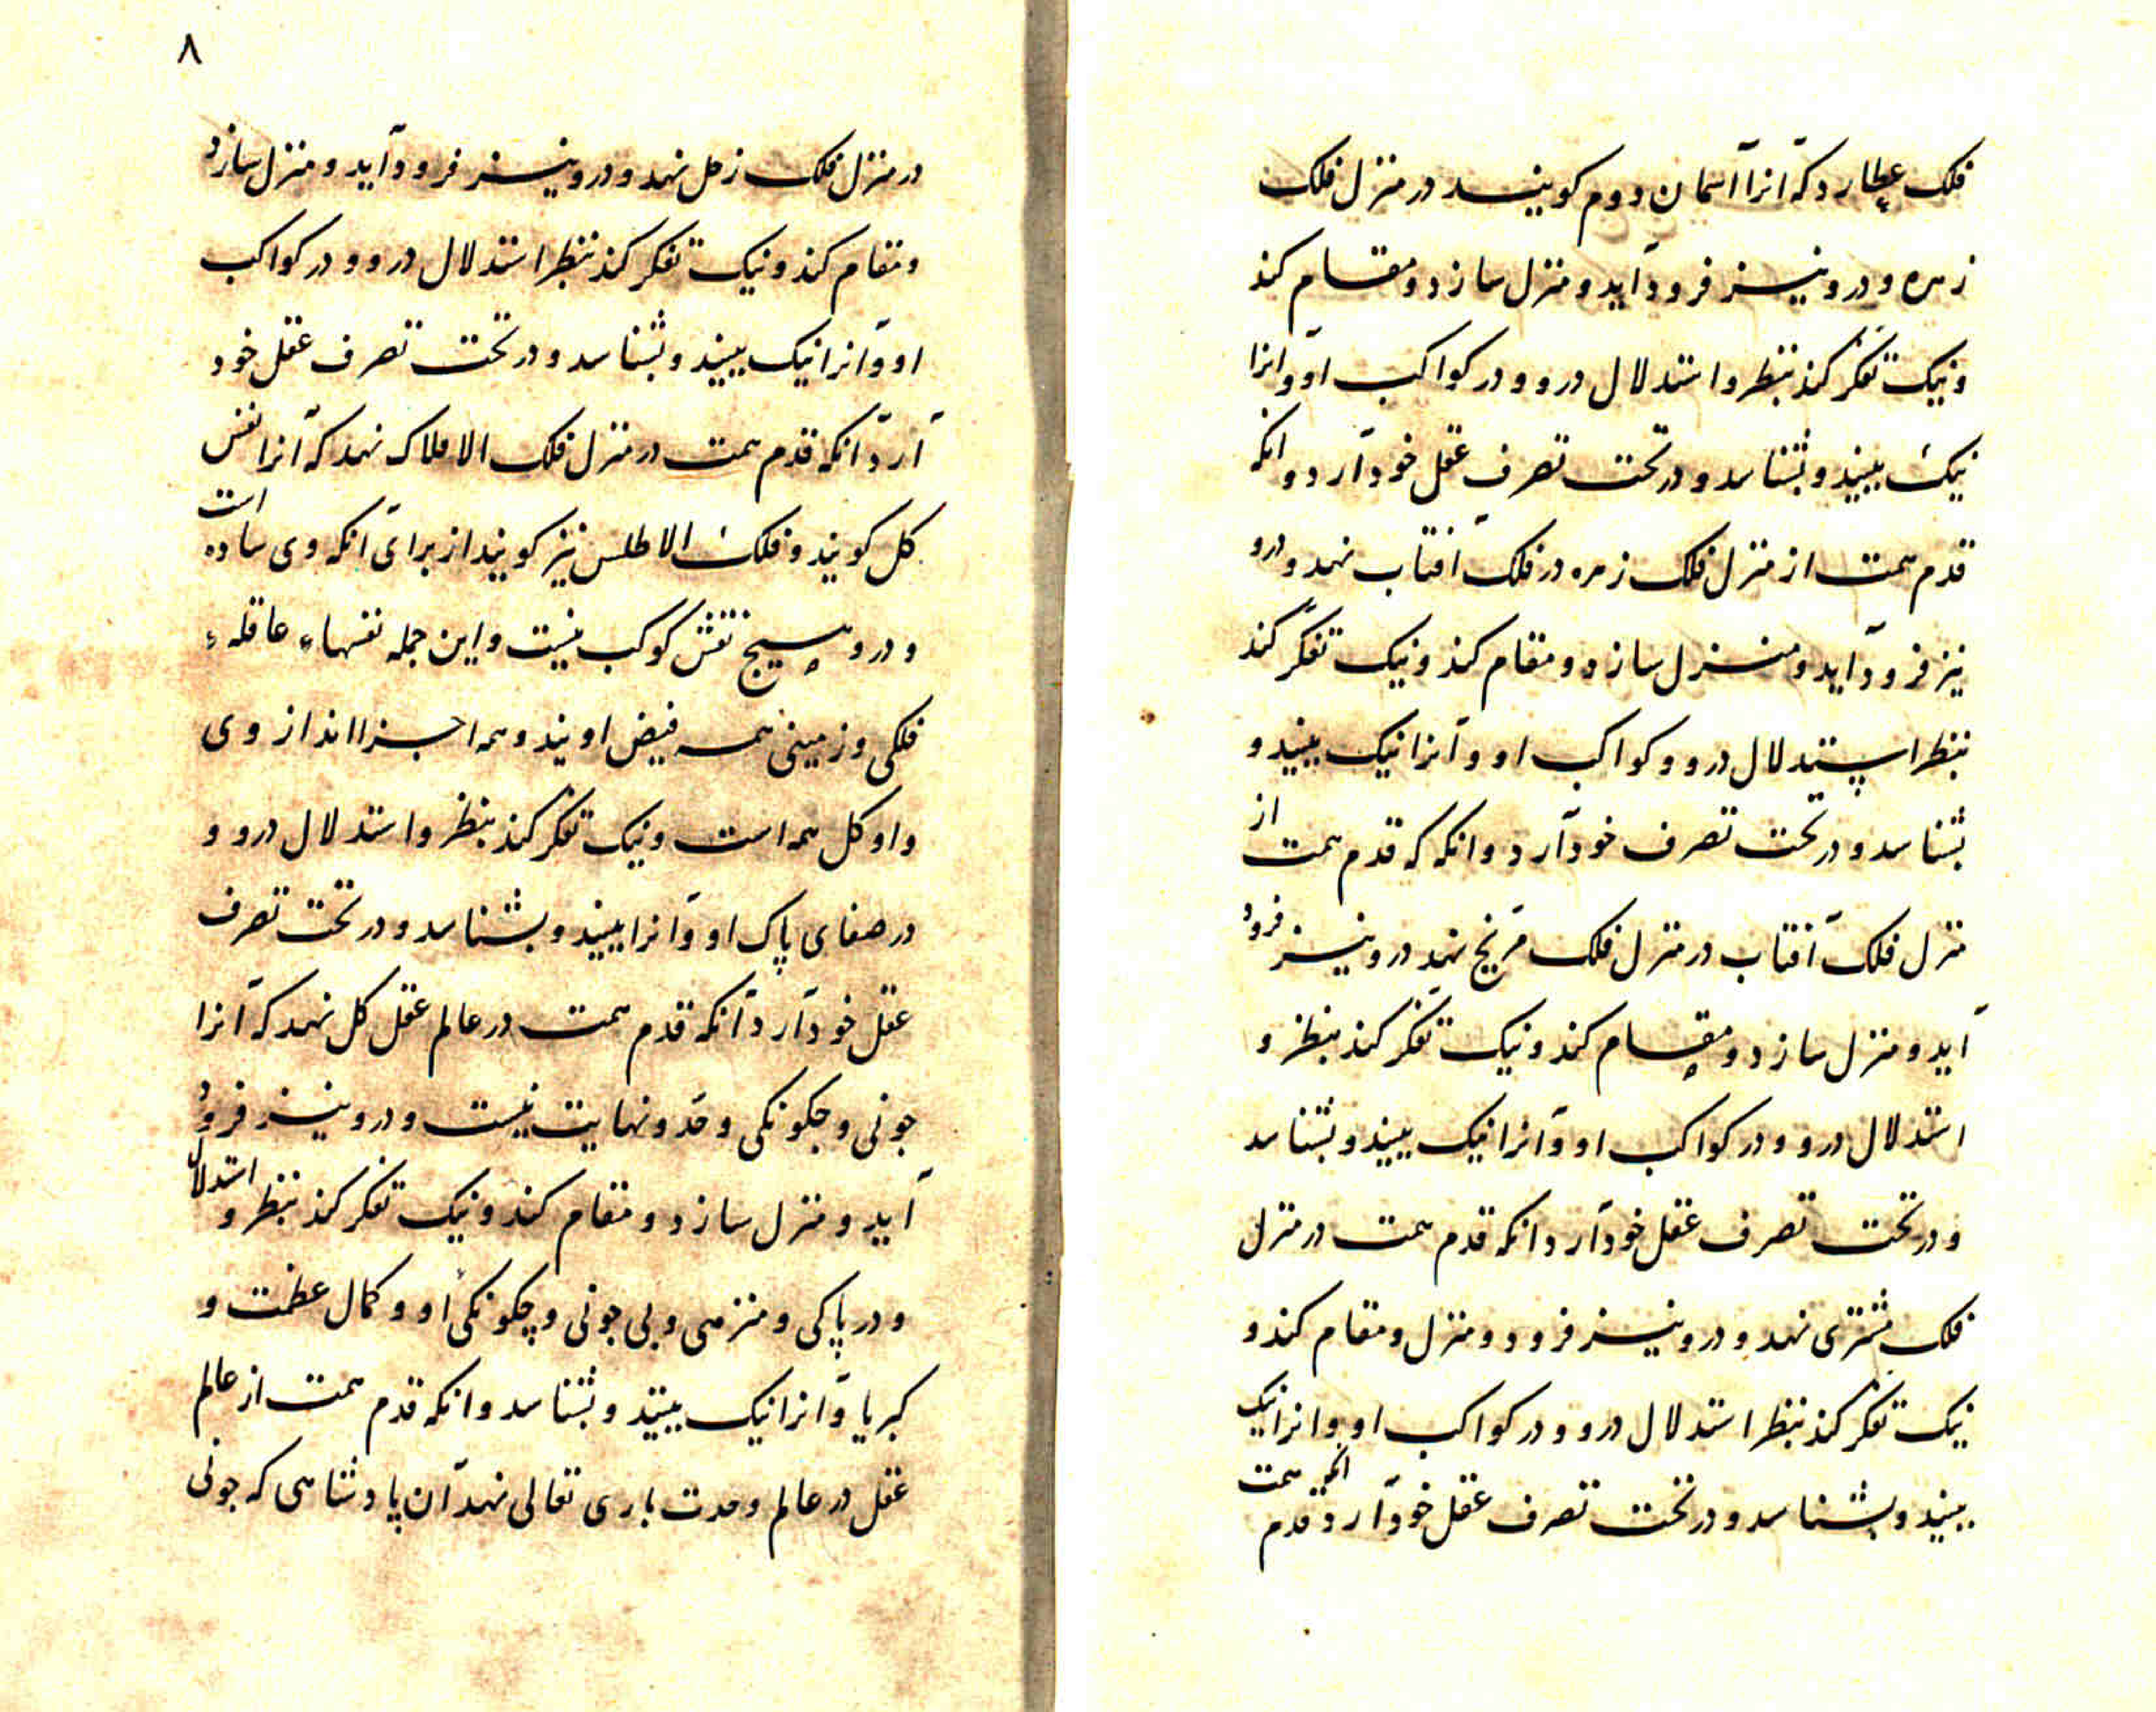 فلک عطارد که آنرا آسمان دوم کویند در منزل فلک
زهره و درو نیز فرود آید و منزل سازد و مقام کند
و نیک تفکر کند بنظر و استدلال درو و در کواکب او و انرا
نیک ببیند و بشناسد و در تحت تصرف عقل خود آرد و انکه
قدم همت از منزل فلک زهره در فلک آفتاب نهد و درو
نیز فرود آید و منزل سازد و مقام کند و نیک تفکر کند
بنظر استدلال درو و کواکب او و آنرا نیک ببیند و
بشناسد و در تحت تصرف خود آرد و انکه که قدم همت از
منزل فلک آفتاب در منزل فلک مریخ نهد درو نیز فرود
آید و منزل سازد و مقام کند و نیک تفکر کند بنظر و
استدلال درو و در کواکب او و آنرا نیک ببیند و بشناسد
و در تحت تصرف عقل خود آرد انکه قدم همت در منزل
فلک مشتری نهد و درو نیز فرود و منزل و مقام کند و
نیک تفکر کند بنظر استدلال درو و در کواکب او و انرا نیک
ببیند و بشناسد و در تحت تصرف عقل خود آرد انکه قدم همت
۸
در منزل فلک زحل نهد و درو نیز فرود آید و منزل سازد
و مقام کند و نیک تفکر کند بنظر استدلال درو و در کواکب
او و آنرا نیک ببیند و بشناسد و در تحت تصرف عقل خود
آرد آنکه قدم همت در منزل فلک الافلاک نهد که آنرا نفس
کل کویند و فلک الاطلس نیز کویند از برای آنکه وی ساده است
و درو هیچ نقش کوکب نیست و این جمله نفسهاء عاقلهء
فلکی و زمینی همه فیض اویند و همه اجزا اند از وی
و او کل همه است و نیک تفکر کند بنظر و استدلال درو و
در صفای پاک او و آنرا ببیند و بشناسد و در تحت تصرف
عقل خود آرد آنکه قدم همت در عالم عقل کل نهد که آنرا
جونی و جکونکی و حد و نهایت نیست و درو نیز فرود
آید و منزل سازد و مقام کند و نیک تفکر کند بنظر و استدلال
و در پاکی و منزهی و بی جونی و چکونکی او و کمال عظمت و
کبریا و آنرا نیک ببیند و بشناسد و انکه قدم همت از عالم
عقل در عالم وحدت باری تعالی نهد آن پادشاهی که جونی